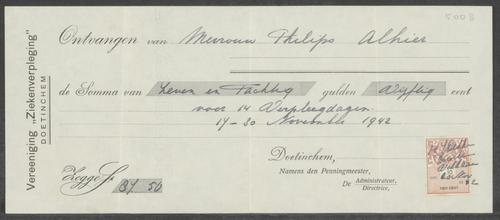 5003
Vereeniging „Ziekenverpleging”
DOETINCHEM
Ontvangen van Mevrouw Philips Alhier
de Somma van Zeven en Tachtig gulden Vijftig cent
voor 14 Verpleegdagen.
17-30 November 1942
Doetinchem,
Namens den Penningmeester,
De Administrateur,
Directrice,
Zegge ƒ 87 50